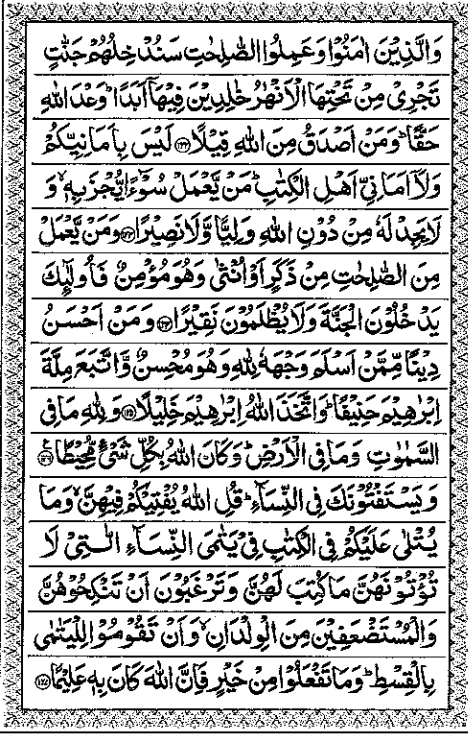 وَالَّذِيْنَ اٰمَنُوْا وَعَمِلُوا الصّٰلِحٰتِ سَنُدْخِلُهُمْ جَنّٰتٍ
تَجْرِيْ مِنْ تَحْتِهَا الْاَنْهٰرُ خٰلِدِيْنَ فِيْهَاۤ اَبَدًا ؕ وَعْدَ اللّٰهِ
حَقًّا ؕ وَمَنْ اَصْدَقُ مِنَ اللّٰهِ قِيْلًا ﴿۱۲۲﴾ لَيْسَ بِاَمَانِيِّكُمْ
وَلَاۤ اَمَانِيِّ اَهْلِ الْكِتٰبِ ؕ مَنْ يَّعْمَلْ سُوْٓءًا يُّجْزَ بِهٖ ۙ وَ
لَا يَجِدْ لَهٗ مِنْ دُوْنِ اللّٰهِ وَلِيًّا وَّلَا نَصِيْرًا ﴿۱۲۳﴾ وَمَنْ يَّعْمَلْ
مِنَ الصّٰلِحٰتِ مِنْ ذَكَرٍ اَوْ اُنْثٰى وَهُوَ مُؤْمِنٌ فَاُولٰٓئِكَ
يَدْخُلُوْنَ الْجَنَّةَ وَلَا يُظْلَمُوْنَ نَقِيْرًا ﴿۱۲۴﴾ وَمَنْ اَحْسَنُ
دِيْنًا مِّمَّنْ اَسْلَمَ وَجْهَهٗ لِلّٰهِ وَهُوَ مُحْسِنٌ وَّاتَّبَعَ مِلَّةَ
اِبْرٰهِيْمَ حَنِيْفًا ؕ وَاتَّخَذَ اللّٰهُ اِبْرٰهِيْمَ خَلِيْلًا ﴿۱۲۵﴾ وَلِلّٰهِ مَا فِي
السَّمٰوٰتِ وَمَا فِي الْاَرْضِ ؕ وَكَانَ اللّٰهُ بِكُلِّ شَيْءٍ مُّحِيْطًا ﴿۱۲۶﴾
وَيَسْتَفْتُوْنَكَ فِي النِّسَآءِ ؕ قُلِ اللّٰهُ يُفْتِيْكُمْ فِيْهِنَّ ۙ وَمَا
يُتْلٰى عَلَيْكُمْ فِي الْكِتٰبِ فِيْ يَتٰمَى النِّسَآءِ الّٰتِيْ لَا
تُؤْتُوْنَهُنَّ مَا كُتِبَ لَهُنَّ وَتَرْغَبُوْنَ اَنْ تَنْكِحُوْهُنَّ
وَالْمُسْتَضْعَفِيْنَ مِنَ الْوِلْدَانِ ۙ وَاَنْ تَقُوْمُوْا لِلْيَتٰمٰى
بِالْقِسْطِ ؕ وَمَا تَفْعَلُوْا مِنْ خَيْرٍ فَاِنَّ اللّٰهَ كَانَ بِهٖ عَلِيْمًا ﴿۱۲۷﴾